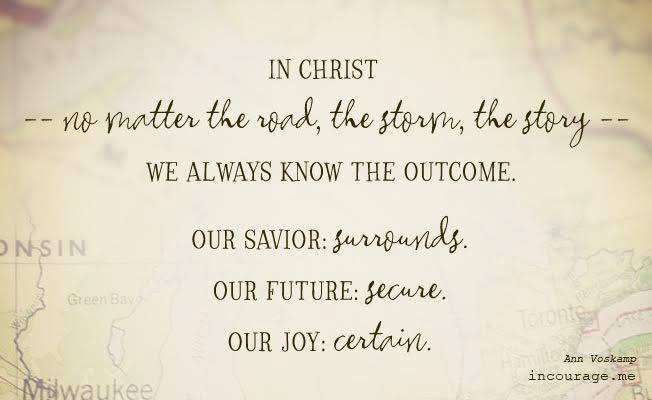 IN CHRIST
-- no matter the road, the storm, the story --
WE ALWAYS KNOW THE OUTCOME.
OUR SAVIOR: surrounds.
ONSIN
OUR FUTURE: secure.
Green Bay
Toronto
OUR JOY: certain.
Hamilton
Ann Voskamp
incourage.me
Milwaukee